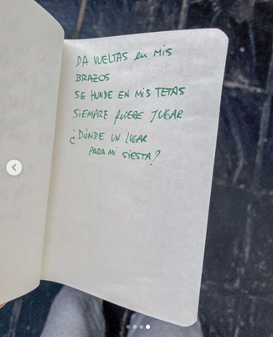 DA VUELTAS en MIS
BRAZOS
SE HUNDE EN MIS TETAS
SIEMPRE QUIERE JUGAR
¿DÓNDE UN LUGAR
PARA MI SIESTA?